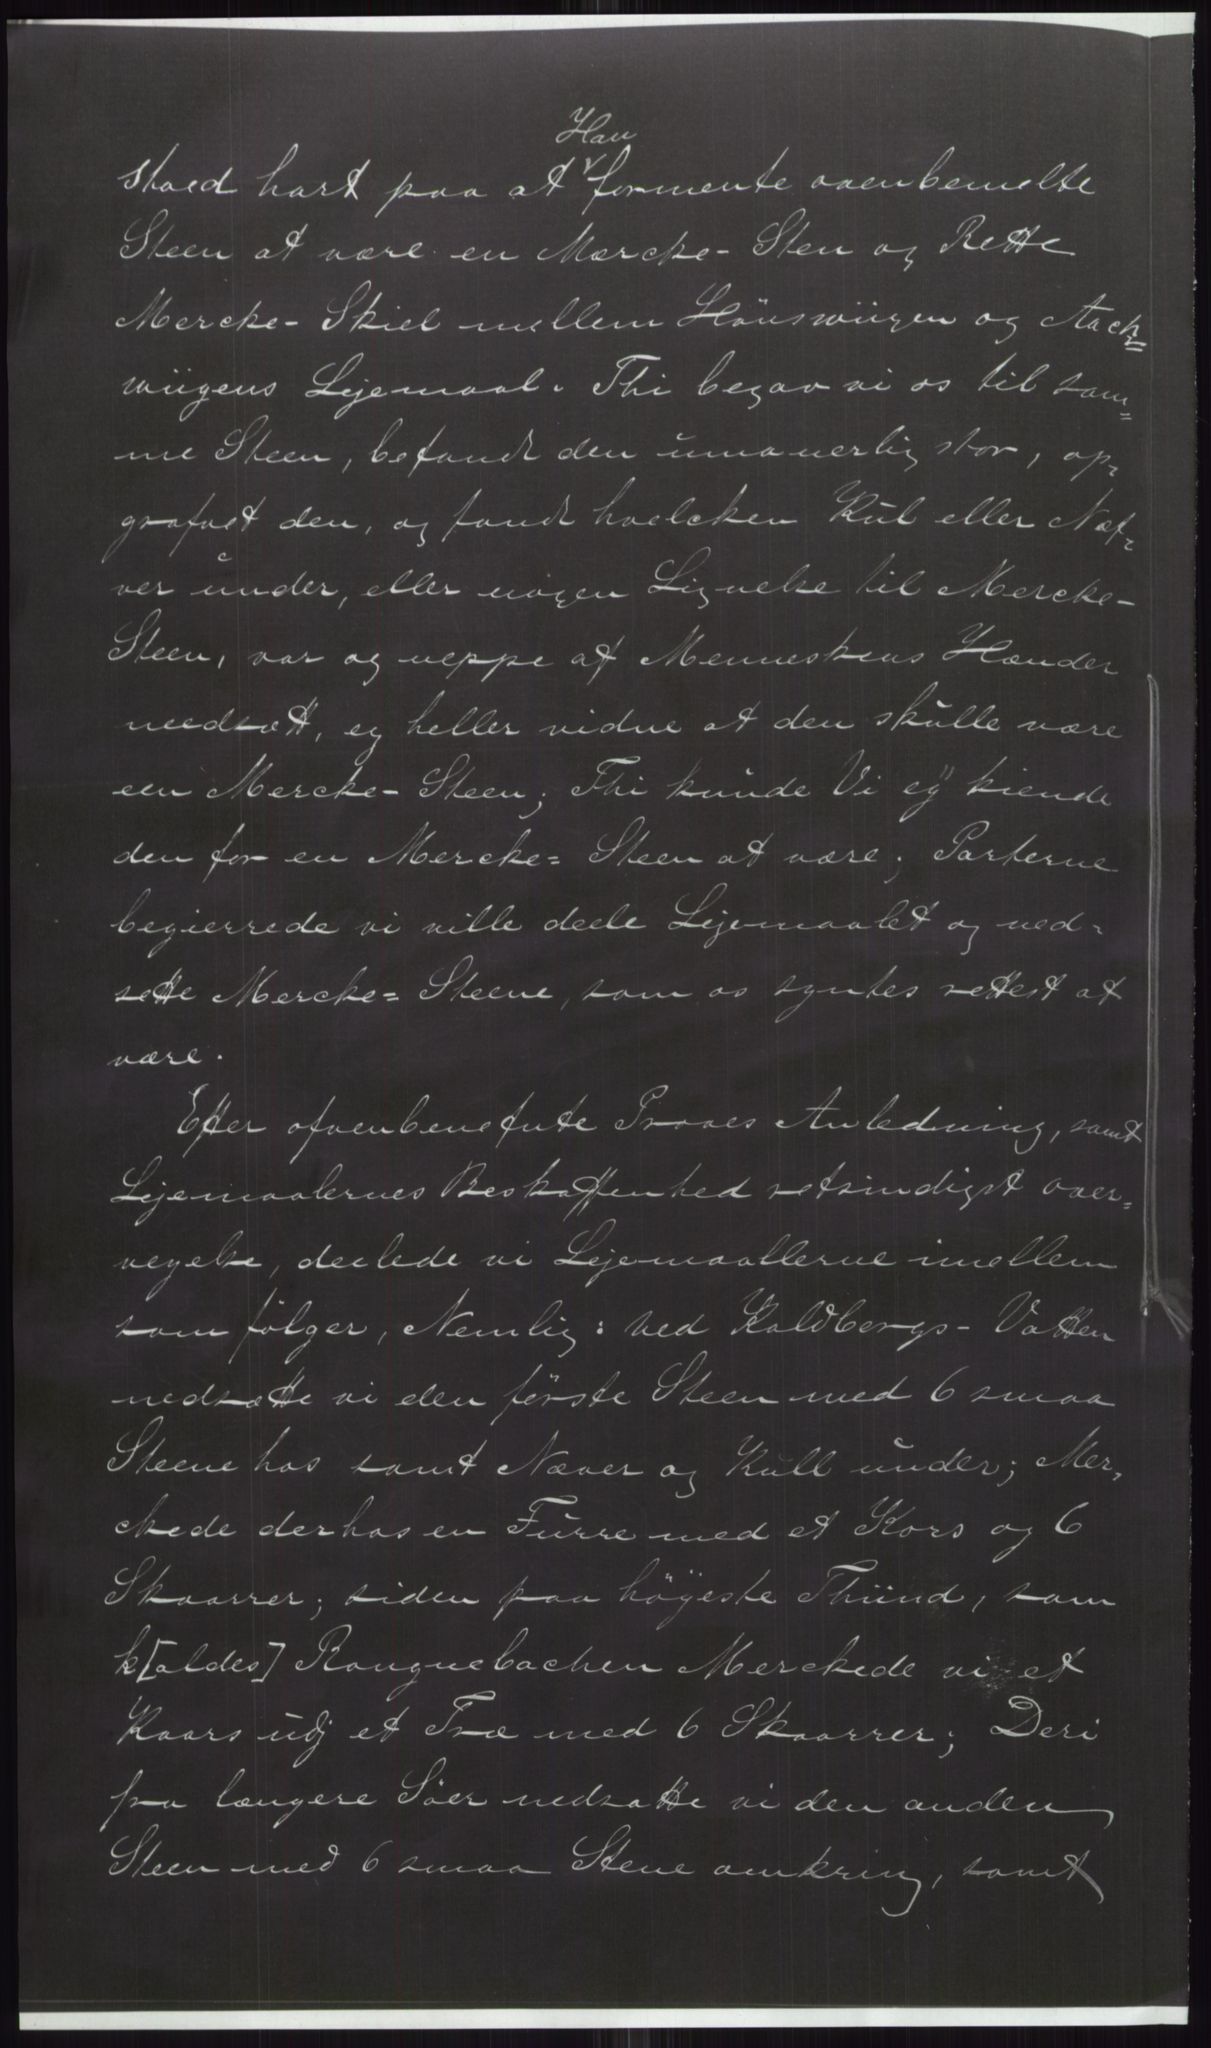 Han
stoed hart paa at formente ovenbemelte
Steen at være en Mærcke- Sten og Rette
Mercke- Skiel mellem Hünswügen og Aack=
wiigens Lejemaal. Thi begav vi os til sam=
me Steen, befandt den ümanerlig stor, op-
grafvet den, og fandt hvelcken Kül eller Næf-
ver ünder, eller nogen Lignelse til Mercke-
Steen, var og neppe af Menneskens Hænder
needsatt, ey heller vidne at den skülle være
een Mercke- Steen; Thi künde Vi eÿ kiende
den for en Mercke= Steen at være; Parterne
begierrede vi ville deele Lejemaalet og ned-
sette Mercke= Steene, som os syntes rettest at
være.
Efter ofvenbenefnte Proves Anledning, samt
Lejemaalernes Beskaffenhed retsindigst over=
vegelse, deelede vi Lejemaallerne imellem
som følger, Nemlig: ved Koldbergs- Vatten
nedsatte vi den förste Steen med 6 smaa
Steene hos samt Næver og Kull ünder; Mer-
ckede derhos en Fürre med et Kors og 6
Skaarrer; siden paa höÿeste Thünd, som
k[aldes] Rougnebachen Merckede vi et
Kaars üdj et Træ med 6 Skaarrer; Deri
fra længere Söer nedsatte vi den anden
Steen med 6 smaa Stene omkring, samt